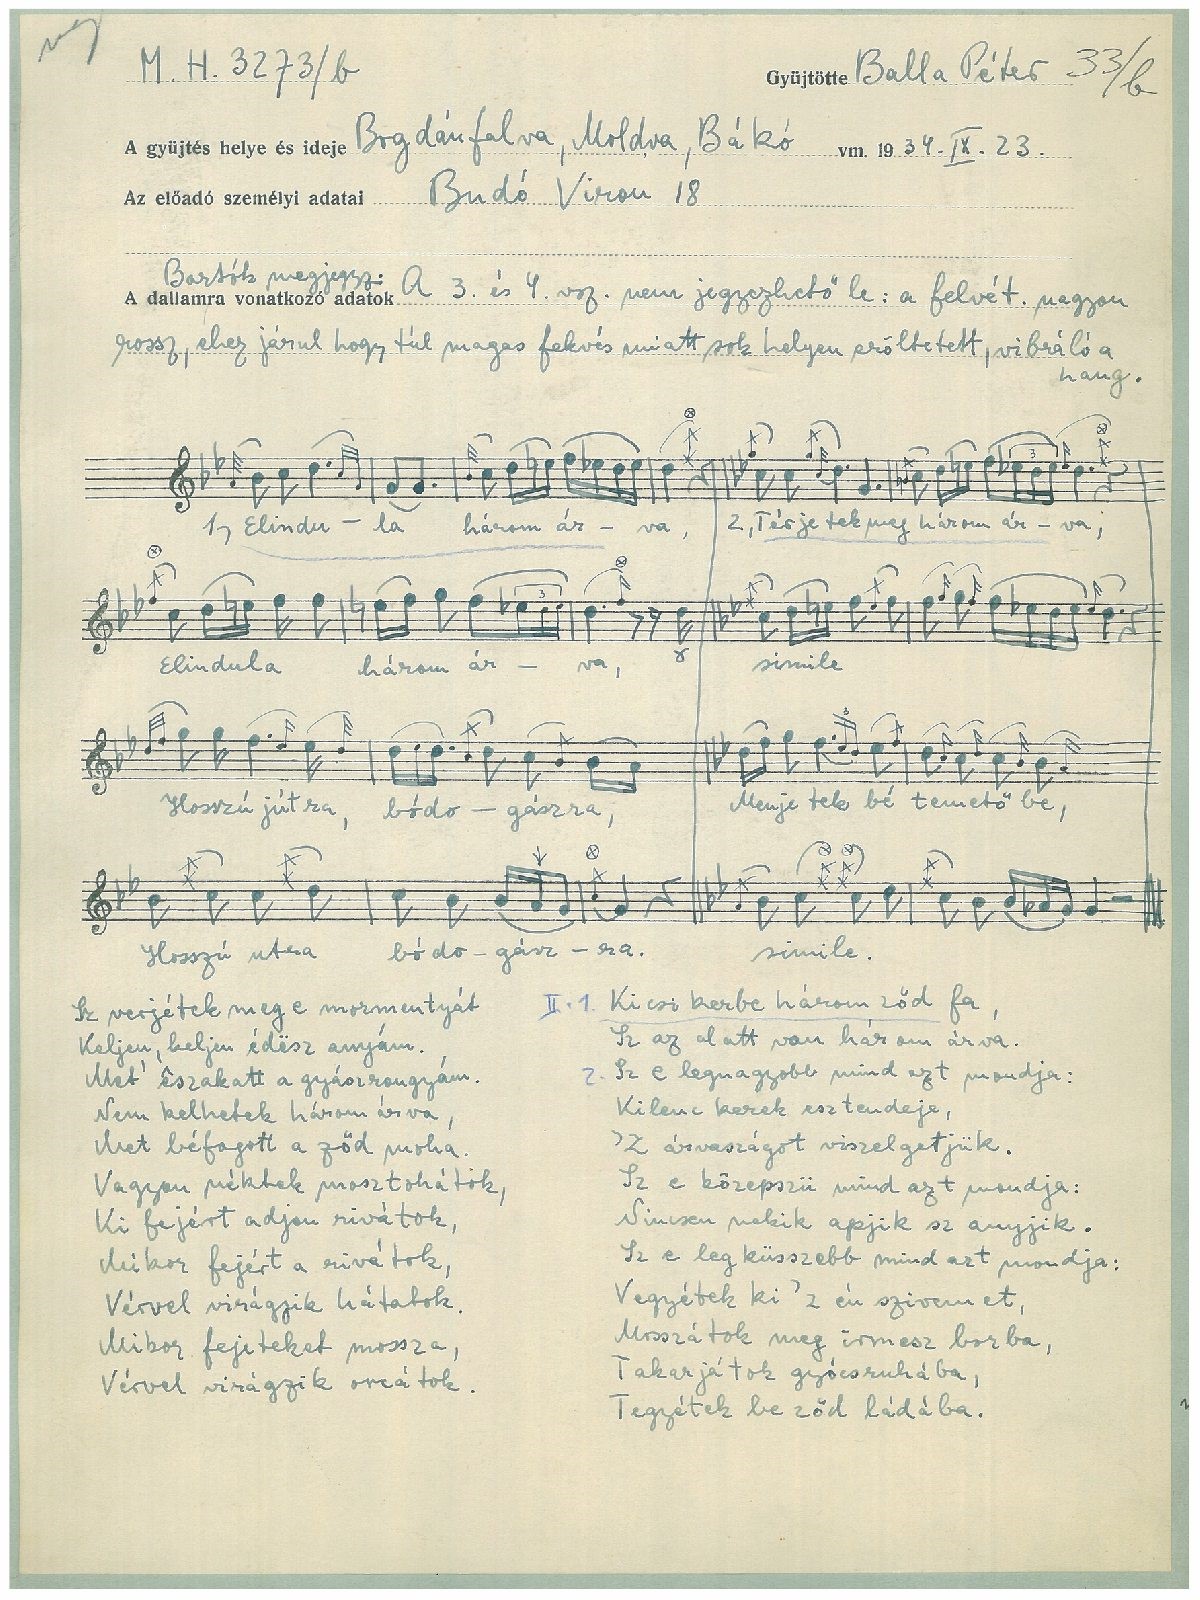 M. H. 3273/b
Gyüjtötte Balla Péter 33/b
A gyüjtés helye és ideje Bogdánfalva, Moldva, Bákó vm. 1934. IX. 23.
Az előadó személyi adatai Budó Viron 18
Bartók megjegyz:
A dallamra vonatkozó adatok A 3. és 4. vsz. nem jegyezhető le: a felvét. nagyon
rossz, ehez járul hogy túl magas fekvés miatt sok helyen erőltetett, vibráló a
hang.
1, Elindu - la három ár - va, 2, Térjetek meg három ár - va;
3
3
Elindula három ár - va, simile
Hosszú jútra, bódo - gászra, Menjetek bé temető be,
Hosszú utra bódo - gász - ra. simile.
Sz verjétek meg e mormentyát
Keljen, keljen édësz anyám.
Met' északatt a gyászrongyám.
Nem kelhetek három árva,
Met béfogott a ződ mohá.
Vagyon néktek mosztohátok,
Ki fejért adjon rivátok,
Mikor fejért a rivátok,
Vérvel virágzik hátatok.
Mikor fejiteket mossza,
Vérvel virágzik orcátok.
II. 1. Kicsi kerbe három ződ fa,
Sz az alatt van három árva.
2. Sz e legnagyobb mind azt mondja:
Kilenc kerek esztendeje,
'Z árvaszágot viszelgetjük.
Sz e közepszü mind azt mondja:
Nincsen nekik apjik sz anyjik.
Sz e legküsszebb mind azt mondja:
Vegyétek ki 'z én szivemet,
Mosszátok meg ürmesz borba,
Takarjátok gyócsruhába,
Tegyétek be ződ ládába.